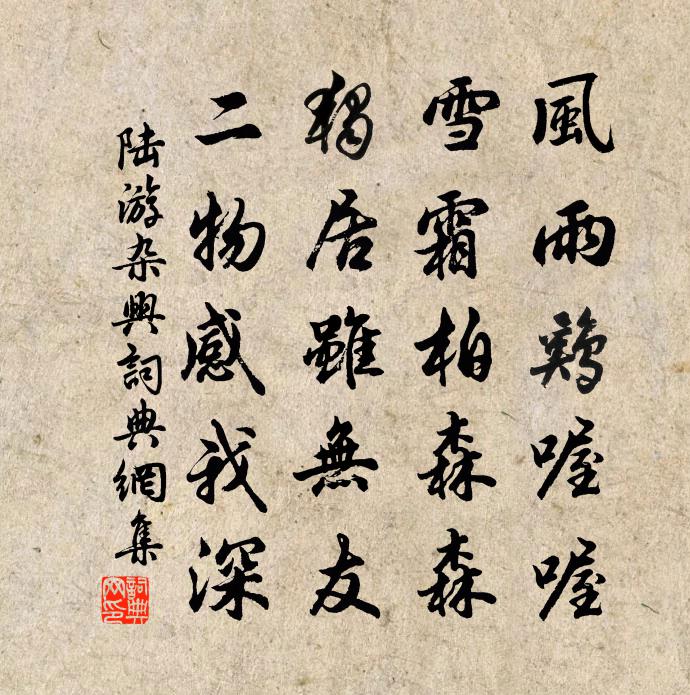 風雨鷄喔喔
雪霜柏森森
獨居雖無友
二物感我深
陆游杂興詞典網集
詞典网印